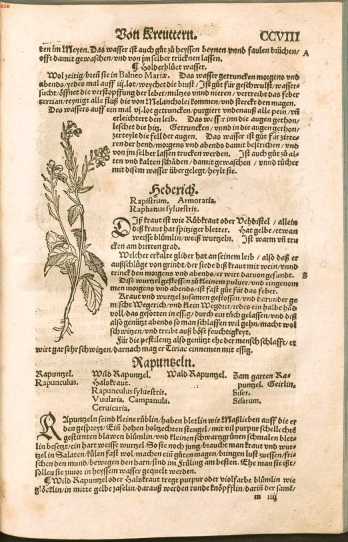 Von Kreuttern. CCVIII
ten im Meyen. Das wasser ist auch gůt zů heyssen beynen vnnd faulen brüchen/ A
offt damit gewaschen/ vnd von im selber trüncken lassen.
¶ Holderblüet wasser.
Wol zeitig/ breñ sie in Balneo Mariæ. Das wasser getruncken morgens vnd
abends/ yedes mal auff iij. lot/ weychet die brust/ Ist gůt für geschwulst/ wasser-
sucht/ öffnet die verstopffung der leber/ miltzes vnnd nieren/ vertreibt das feber
tertian/ reyniget alle flüß die von Melancholei kommen/ vnd sterckt den magen.
Des wassers auff ein mal vj. lot getruncken/ purgiert vnden auß alle pein/ vñ
erleichtert den leib. Das wasser inn die augen gethon/
leschet die hitz. Getruncken/ vnnd in die augen gethon/
zerteylt die fell der augen. Das wasser ist gůt für zitte-
ren der hend/ morgens vnd abends damit bestrichen/ vnd
von im selber lassen trucken werden. Ist auch gůt zů al-
ten vnd kalten schäden/ damit gewaschen/ vnnd tücher
mit disem wasser übergelegt/ heylt sie.
Hederich.
Rapistrum. Armoratia.
Raphanus syluestris.
Diß kraut ist wie Rübkraut oder Vehdistel/ allein
diß kraut hat spitziger bletter. Hat gelbe/ etwan
weisse blümlin/ weiß wurtzeln. Ist warm vñ tru-
cken am dritten grad.
Welcher erkalte glider hat an seinem leib/ also daß er
außschlüge von gründt/ der siede diß kraut mit wein/ vnnd
trinck den morgens vnd abends/ er wirt daruon gesundt. B
Dise wurtzel gestossen zů kleinem puluer/ vnd eingenom-
men morgens vnd abends/ ist fast gůt für das feber.
Kraut vnd wurtzel zusamen gestossen/ vnd darunder ge-
mischt Wegerich/ vnd klein Wegerich/ yedes ein halbe hand-
voll/ das gesotten in essig/ durch ein tůch gelassen/ vnd diß
also genützt abends so man schlaffen wil gehn/ macht wol
schwitzen/ vnd treibt auß böse feuchtigkeyt.
Für die pestilentz also genützt ehe der mensch schlafft/ er
wirt gar sehr schwitzen/ darnach mag er Tiriac einnemen mit essig.
Rapuntzeln.
Rapuntzel. Wild Rapuntzel. Wald Rapuntzel. Zam garten Ra-
Rapunculus. Halskraut. puntzel. Geirlin.
Rapunculus syluestris. Siser.
Vuularia. Campanula. Siserum.
Ceruicaria.
Rapuntzeln seind kleine rüblin/ haben bletlin wie Maßlieben auff die er-
den gespreyt/ Ein hohen holzechten stengel/ mit vil purpur schellechte
gestirnten blawen blümlin/ vnd kleinen schwartzgrünen schmalen blet-
lin besetzt/ ein hart weisse wurtzel. So sie noch jung/ braucht man kraut vnd wur-
tzel in Salaten/ külen fast wol/ machen ein gůten magen/ bringen lust zuessen/ fri-
schen den mund/ bewegen den harn/ sind im Früling am besten. Ehe man sie isset/
sollen sie zuuor in heyssem wasser gequelt werden.
¶ Wild Rapuntzel oder Halskraut tregt purpur oder violfarbe blümlin wie
glöcklin/ in mitte gelbe zaselin/ darauß werden runde knöpfflin/ darin der same/
m iiij